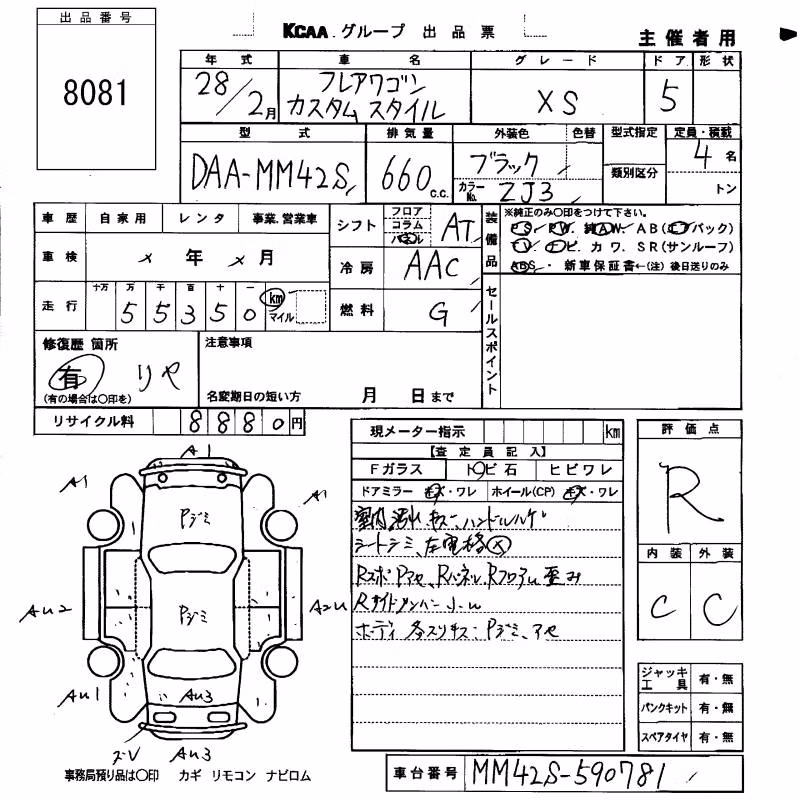 出品番号
8081
KCAA.グループ 出品票
主催者用
年式 車名 グレード ドア 形状
28/2月 フレアワゴン カスタムスタイル XS 5
型式 排気量 外装色 色替 型式指定 定員・積載
DAA-MM42S 660 c.c. ブラック 4 名
カラーNo. ZJ3 類別区分 トン
車歴 自家用 レンタ 事業.営業車
シフト フロア コラム パネル AT
装備品 ※純正のみ○印をつけて下さい。
PS. PW. 純AW. AB(エアバック)
TV. ナビ. カワ. SR(サンルーフ)
ABS. 新車保証書←(注) 後日送りのみ
車検 × 年 × 月
冷房 AAC
走行 十万 万 千 百 十 一
55350 km マイル
燃料 G
セールスポイント
修復歴 箇所
有 リヤ
(有の場合は○印を)
注意事項
名変期日の短い方 月 日まで
リサイクル料 8880円
現メーター指示 km
【査定員記入】
Fガラス トビ石 ヒビワレ
ドアミラー キズ・ワレ ホイール(CP) キズ・ワレ
室内汚れ キズ、ハンドルハゲ
シートシミ、左電格×
Rスポ Pアセ、Rパネル、Rフロア 歪み
ボディ 各スリキズ Pジミ、アセ
評価点
R
内装 外装
C C
A1
A1 A1
Pジミ
Pジミ
AU2 A2U
AU1 AU3 A1
ズV AU3
ジャッキ工具 有・無
パンクキット 有・無
スペアタイヤ 有・無
事務局預り品は○印 カギ リモコン ナビロム
車台番号 MM42S-590781